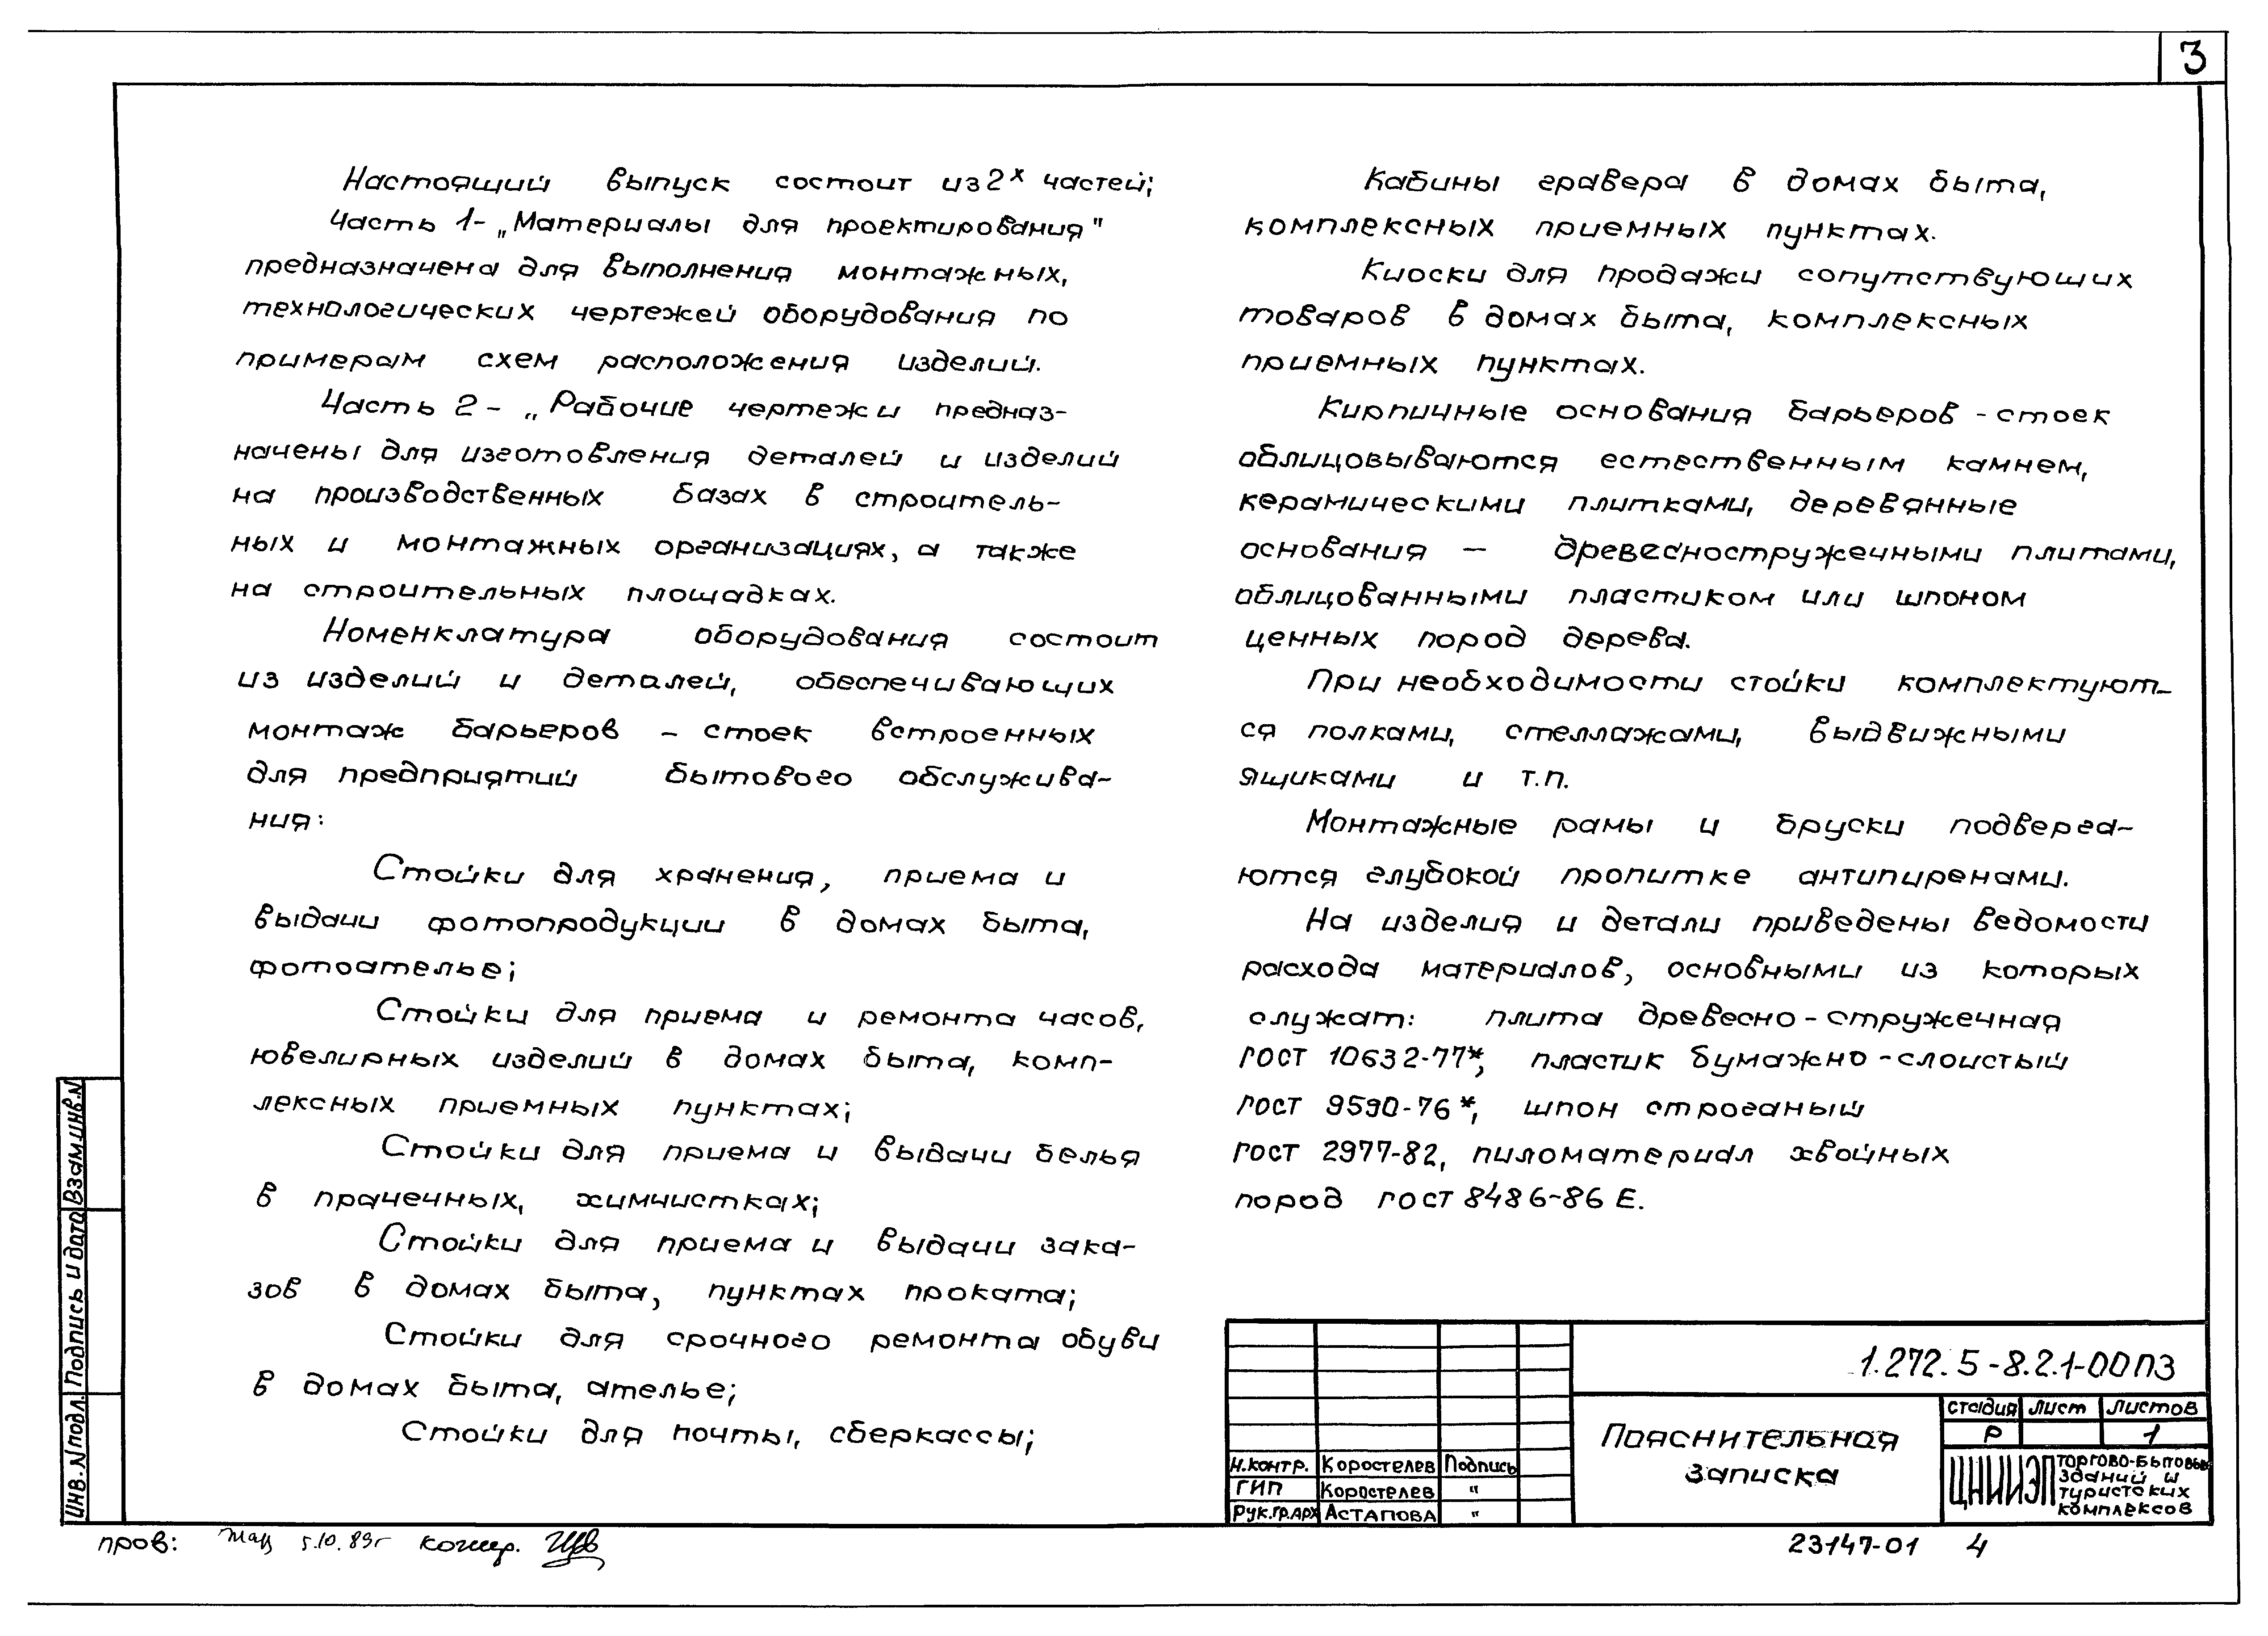 3
Настоящий выпуск состоит из 2х частей;
Часть 1- „Материалы для проектирования"
предназначена для выполнения монтажных,
технологических чертежей оборудования по
примерам схем расположения изделий.
Часть 2 - „Рабочие чертежи предназ-
начены для изготовления деталей и изделий
на производственных базах в строитель-
ных и монтажных организациях, а также
на строительных площадках.
Номенклатура оборудования состоит
из изделий и деталей, обеспечивающих
монтаж барьеров - стоек встроенных
для предприятий бытового обслужива-
ния:
Стойки для хранения, приема и
выдачи фотопродукции в домах быта,
фотоателье;
Стойки для приема и ремонта часов,
ювелирных изделий в домах быта, комп-
лексных приемных пунктах;
Стойки для приема и выдачи белья
в прачечных, химчистках;
Стойки для приема и выдачи зака-
зов в домах быта, пунктах проката;
Стойки для срочного ремонта обуви
в домах быта, ателье;
Стойки для почты, сберкассы;
Кабины гравера в домах быта,
комплексных приемных пунктах.
Киоски для продажи сопутствующих
товаров в домах быта, комплексных
приемных пунктах.
Кирпичные основания барьеров - стоек
облицовываются естественным камнем,
керамическими плитками, деревянные
основания — древесностружечными плитами,
облицованными пластиком или шпоном
ценных пород дерева.
При необходимости стойки комплектуют-
ся полками, стеллажами, выдвижными
ящиками и т.п.
Монтажные рамы и бруски подверга-
ются глубокой пропитке антипиренами.
На изделия и детали приведены ведомости
расхода материалов, основными из которых
служат: плита древесно-стружечная
ГОСТ 10632-77*, пластик бумажно-слоистый
ГОСТ 9590-76*, шпон строганый
ГОСТ 2977-82, пиломатериал хвойных
пород ГОСТ 8486-86 Е.
1.272.5-8.2.1-00ПЗ
Пояснительная
записка
стадия лист листов
Р 1
ЦНИИЭП торгово-бытовых
зданий и
туристских
комплексов
Н.контр. Коростелев Подпись
ГИП Коростелев "
Рук.гр.арх Астапова "
Взам.инв.N
Подпись и дата
Инв.N подл.
пров: 5.10.89г копир.
23147-01 4